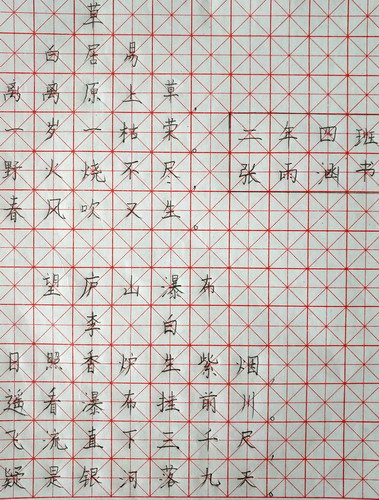 草
白居易
离离原上草，
一岁一枯荣。
野火烧不尽，
春风吹又生。
二年四班
张雨涵书
望庐山瀑布
李白
日照香炉生紫烟，
遥看瀑布挂前川。
飞流直下三千尺，
疑是银河落九天。